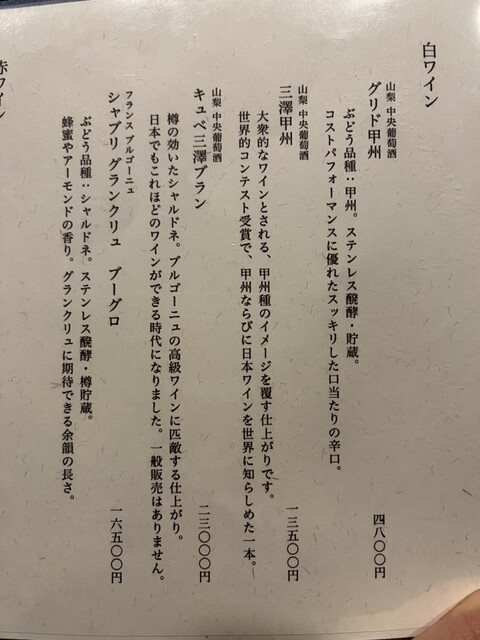 白ワイン
山梨 中央葡萄酒
グリド甲州
ぶどう品種：甲州。ステンレス醗酵・貯蔵。
コストパフォーマンスに優れたスッキリした口当たりの辛口。
四八〇〇円
山梨 中央葡萄酒
三澤甲州
大衆的なワインとされる、甲州種のイメージを覆す仕上がりです。
世界的コンテスト受賞で、甲州ならびに日本ワインを世界に知らしめた一本。
一三五〇〇円
山梨 中央葡萄酒
キュベ三澤ブラン
樽の効いたシャルドネ。ブルゴーニュの高級ワインに匹敵する仕上がり。
日本でもこれほどのワインができる時代になりました。一般販売はありません。
二三〇〇〇円
フランス ブルゴーニュ
シャブリ グランクリュ ブーグロ
ぶどう品種：シャルドネ。ステンレス醗酵・樽貯蔵。
蜂蜜やアーモンドの香り。グランクリュに期待できる余韻の長さ。
一六五〇〇円
赤ワイン